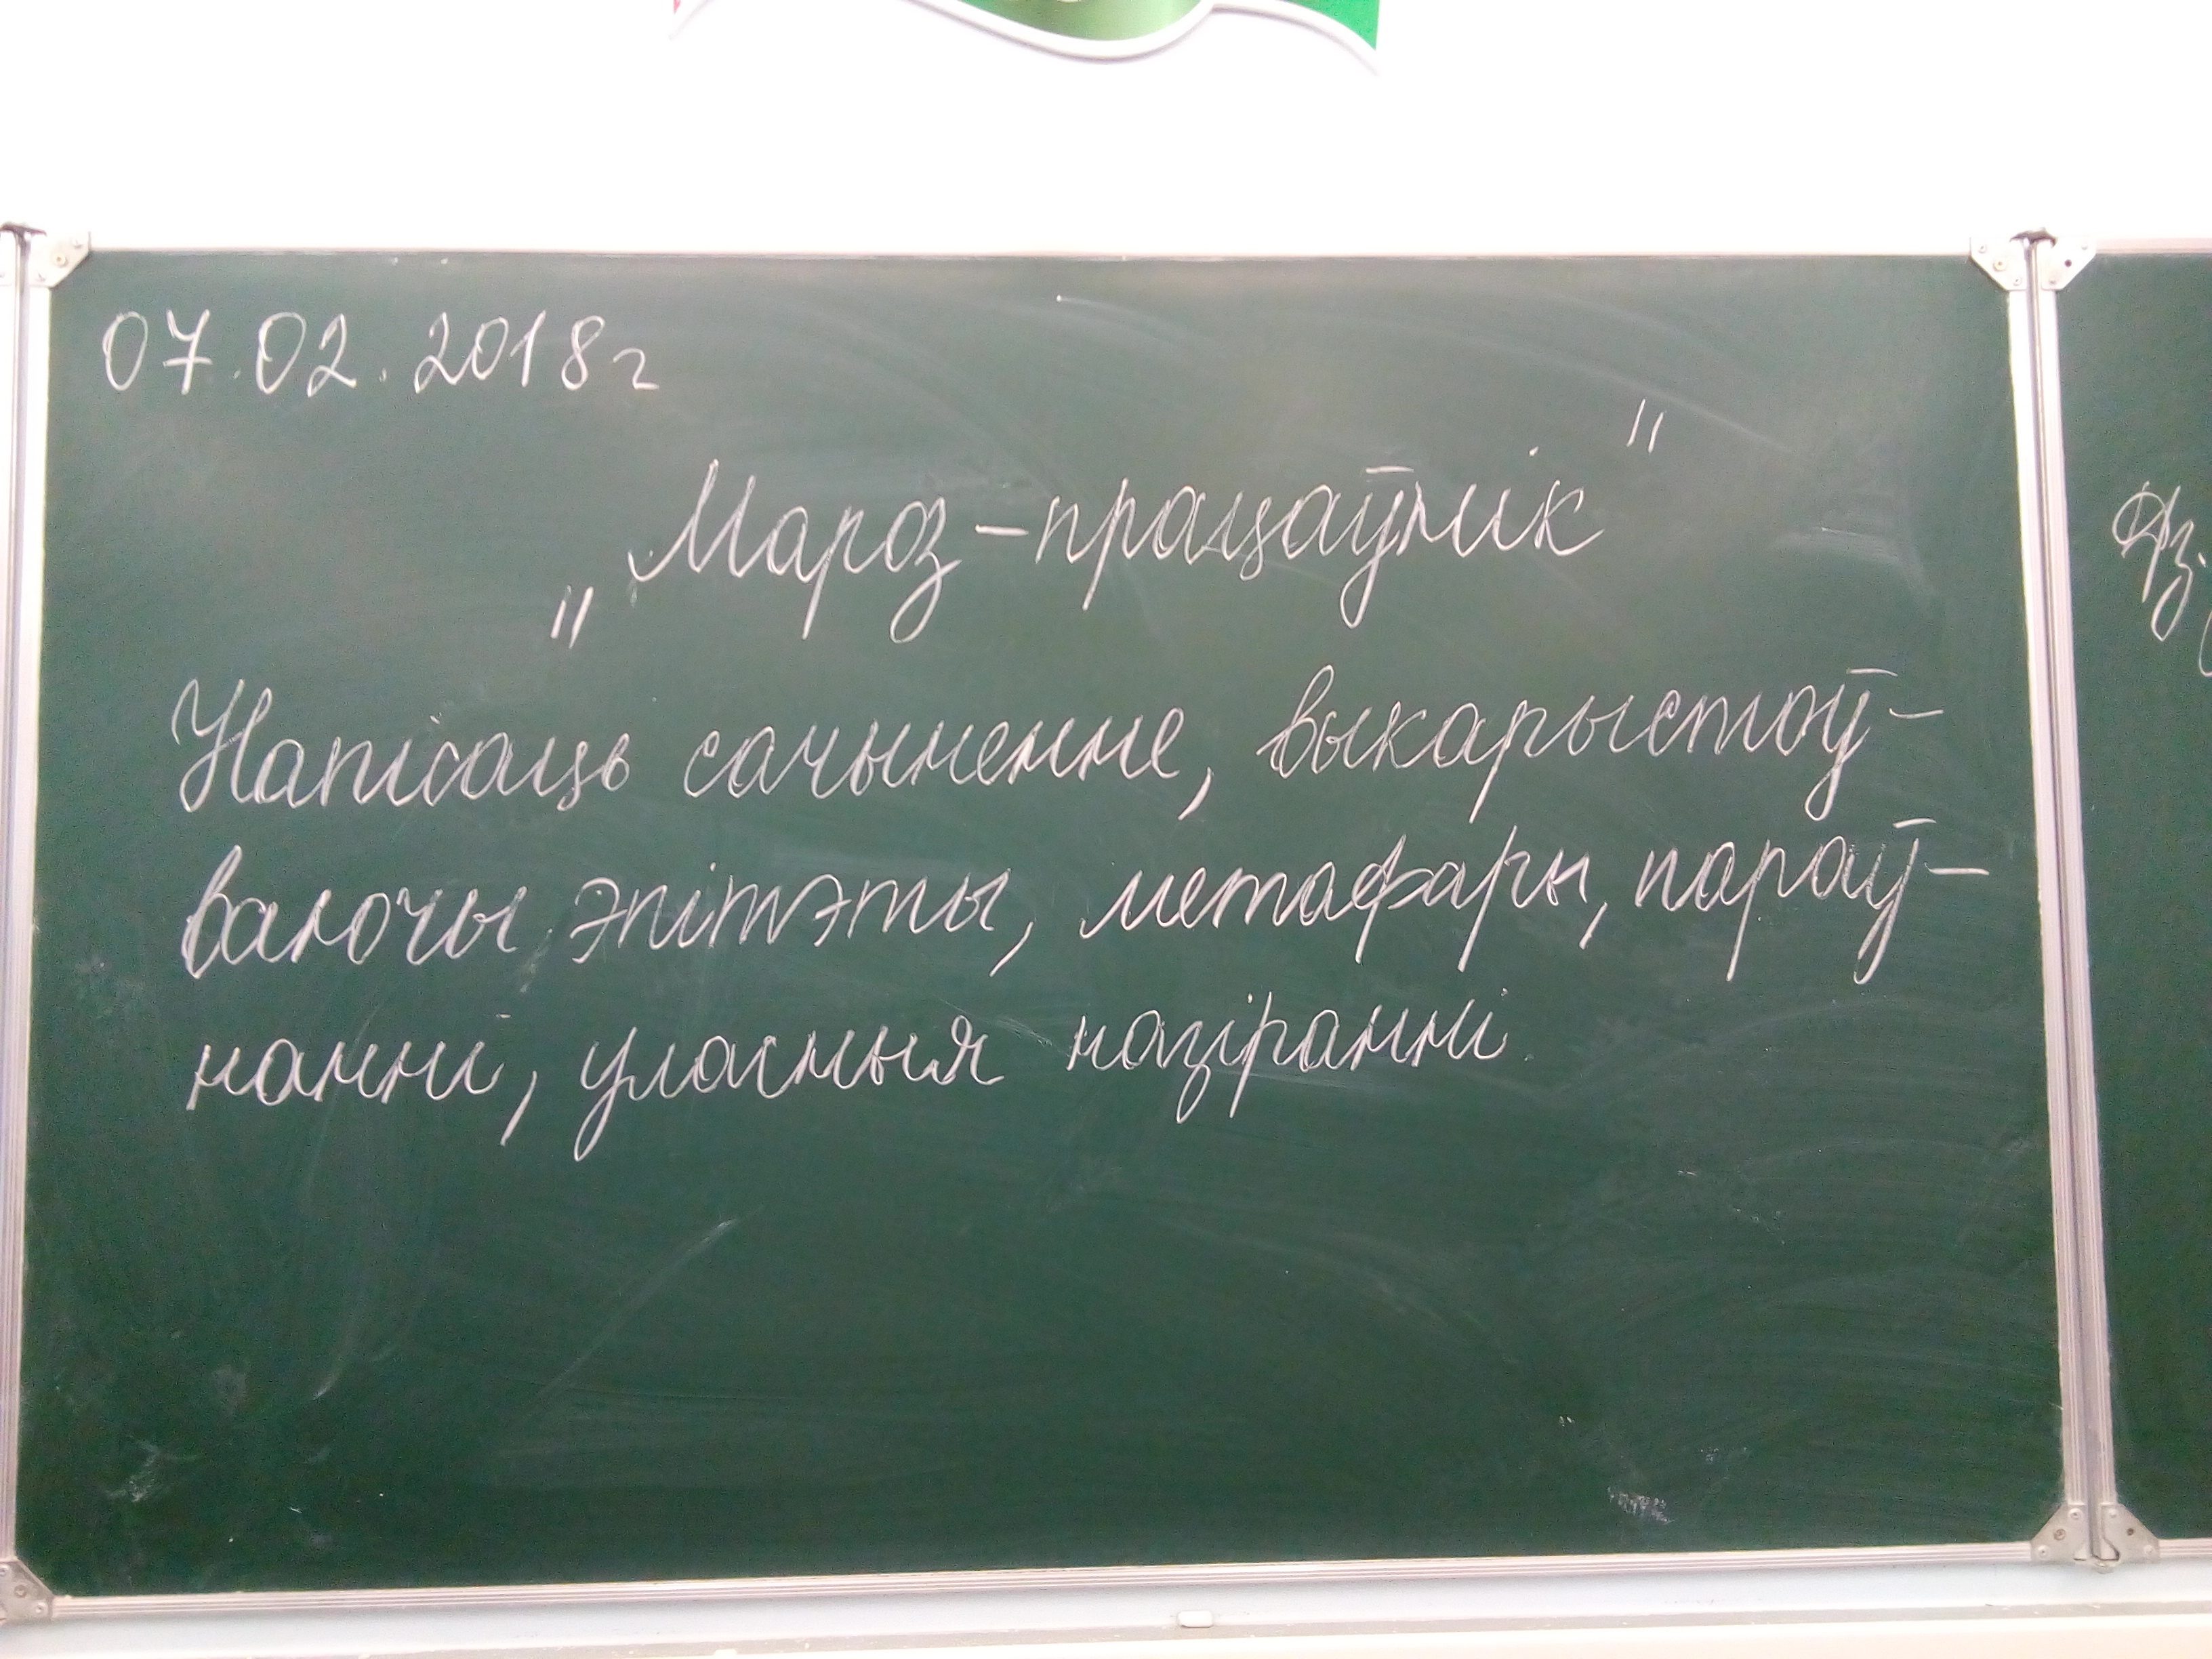 07.02.2018г
„Мароз-працаўнік"
Напісаць сачыненне, выкарыстоў-
ваючы эпітэты, метафары, параў-
нанні, уласныя назіранні.